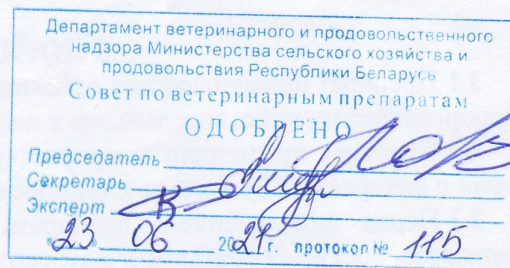 Департамент ветеринарного и продовольственного
надзора Министерства сельского хозяйства и
продовольствия Республики Беларусь
Совет по ветеринарным препаратам
ОДОБРЕНО
Председатель
Секретарь
Эксперт
«23» 06 2021 г. протокол № 115